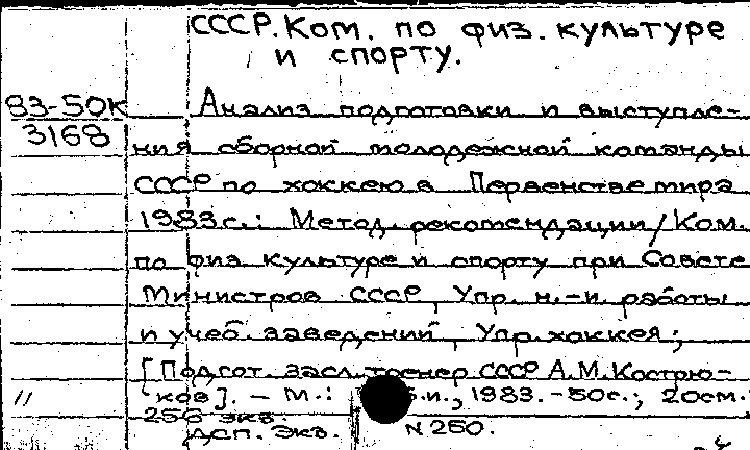 СССР. Ком. по физ. культуре
и спорту.
83-50К
3168
Анализ подготовки и выступле-
ния сборной молодежной команды
СССР по хоккею в Первенстве мира
1983 г.: Метод. рекомендации / Ком.
по физ. культуре и спорту при Совете
Министров СССР, Упр. н.-и. работы
и учеб. заведений, Упр. хоккея;
[Подгот. засл. тренер СССР А.М. Костри-
ков]. – М.: и., 1983. - 50с.; 20см.
256 экз.
ДСП. Экз. N 250.